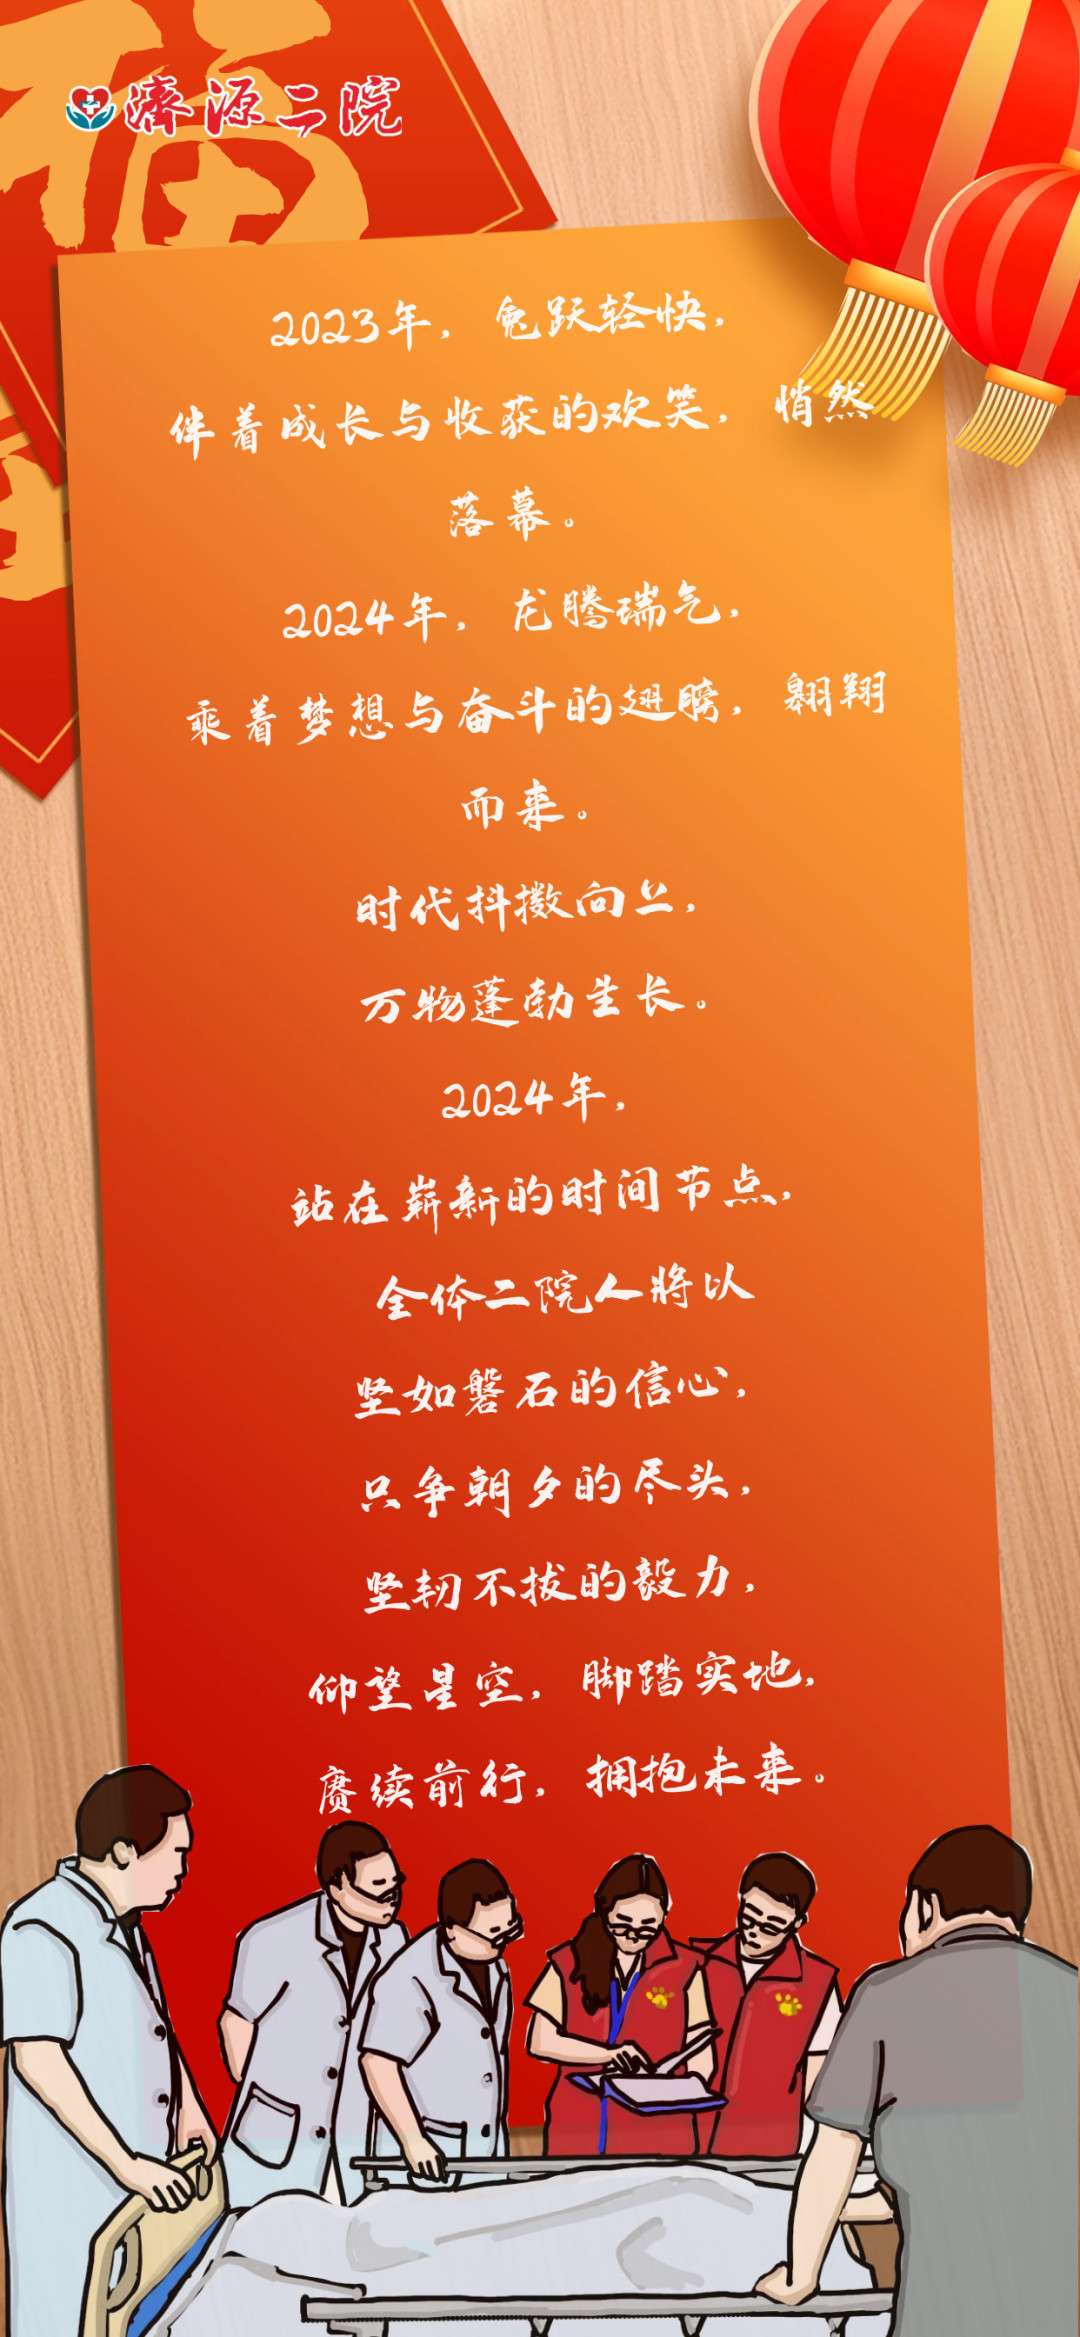 福
濟源二院
2023年，兔跃轻快，
伴着成长与收获的欢笑，悄然
落幕。
2024年，龙腾瑞气，
乘着梦想与奋斗的翅膀，翱翔
而来。
时代抖擞向上，
万物蓬勃生长。
2024年，
站在崭新的时间节点，
全体二院人将以
坚如磐石的信心，
只争朝夕的尽头，
坚韧不拔的毅力，
仰望星空，脚踏实地，
赓续前行，拥抱未来。